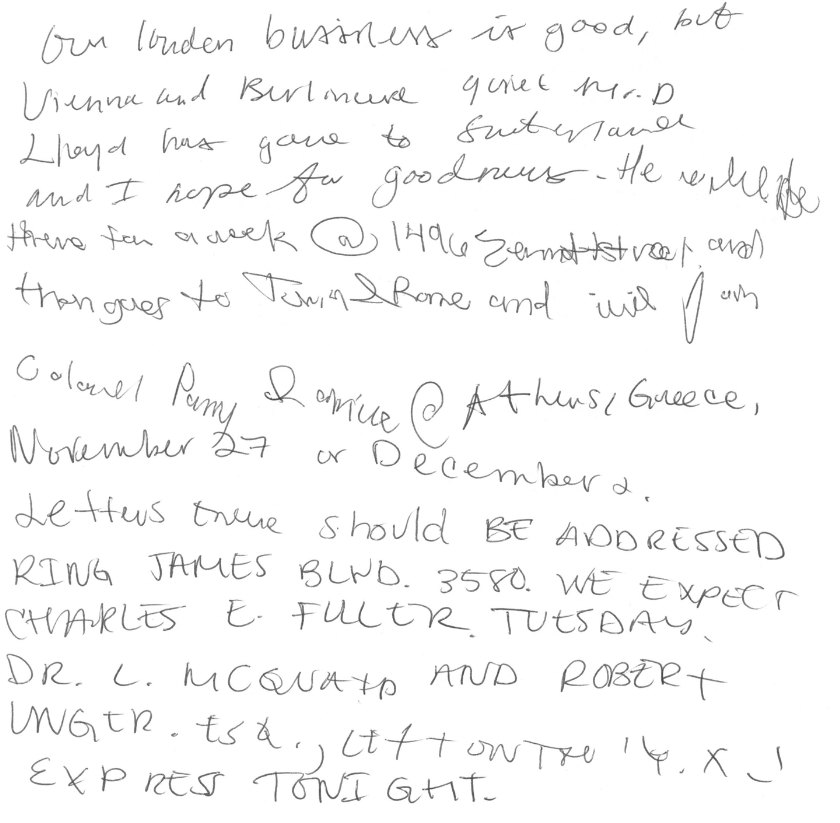 Our londen business is good, but
Vienna and Berlin are quiet Mr. D
Lloyd has gone to Switerland
and I hope for good news. He will be
there for a week @ 1496 Zermott street and
then goes to Turin & Rome and will join
Colonel Parry & arrive @ Athens, Greece,
November 27 or December 2.
Letters there should BE ADDRESSED
KING JAMES BLVD. 3580. WE EXPECT
CHARLES E. FULER. TUESDAY.
DR. L. MCQUAID AND ROBERT
UNGER. ESQ., LEFT ON THE 'Y. X _'
EXPRESS TONIGHT.